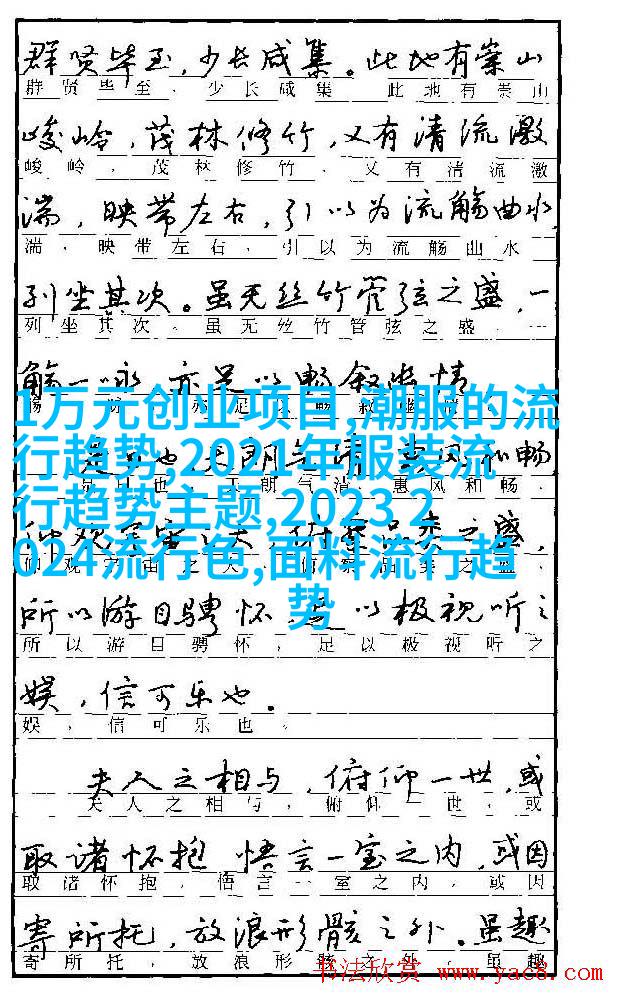 群贤毕至，少长咸集。此地有崇山
群贤毕至，少长咸集。此地有崇山
峻岭，茂林修竹，又有清流激
峻岭，茂林修竹，又有清流激
湍，映带左右，引以为流觞曲水，
湍，映带左右，引以为流觞曲水，
列坐其次。虽无丝竹管弦之盛，一
列坐其次。虽无丝竹管弦之盛，一
觞一咏 亦足以畅叙幽情
1万元创业项目,潮服的流
行趋势,2021年服装流
行趋势主题,2023 2
024流行色,面料流行趋
势
和畅
惠风和畅，
之盛，
所以游目骋怀，足以极视听之
所以游目骋怀，足以极视听之
娱，信可乐也。
娱，信可乐也。
夫人之相与，俯仰一世，或
夫人之相与，俯仰一世，或
取诸怀抱 悟言一室之内，或因
取诸怀抱，悟言一室之内，或因
寄所托，放浪形骸之外。虽趣
寄所托，放浪形骸之外。虽趣
书法欣赏 www.yac8.com